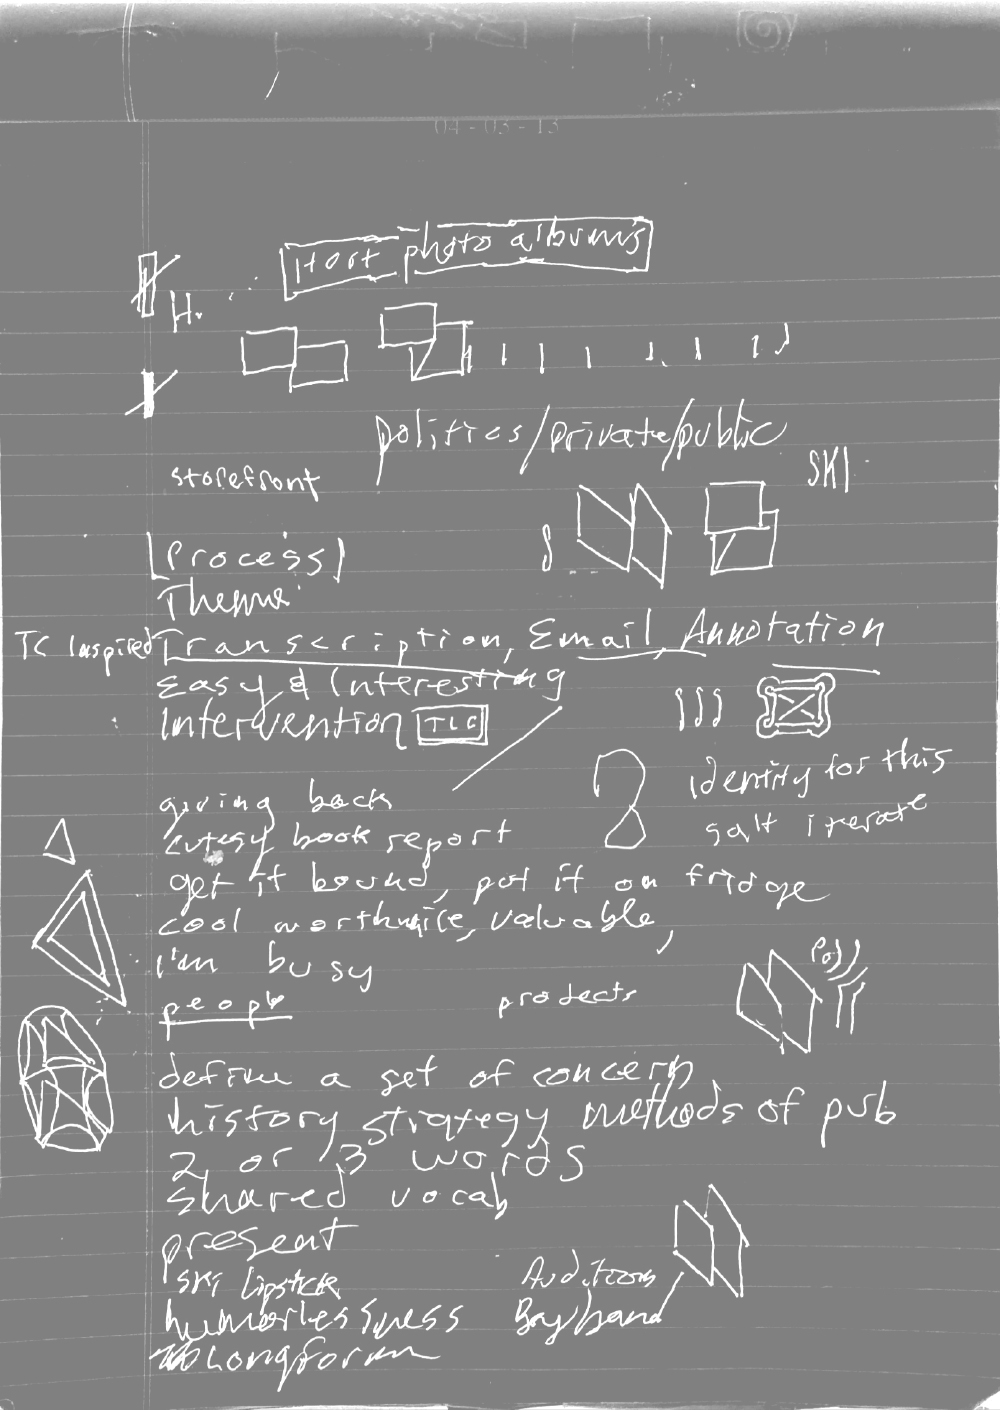 04-03-13
Hort photo albums
H.
politics/private/public
SKI
storefront
[Process]
Theme:
TC Inspired Transcription, Email, Annotation
Easy & Interesting
Intervention TLC
identity for this
salt iterate
giving back
cutesy book report
get it bound, put it on fridge
cool worthwile, valuable,
I'm busy
people
prodects
define a set of concern
history strategy methods of pub
2 or 3 words
shared vocab
present
SKI lipstick
Auditions
humorlessness
Boy band
Longform